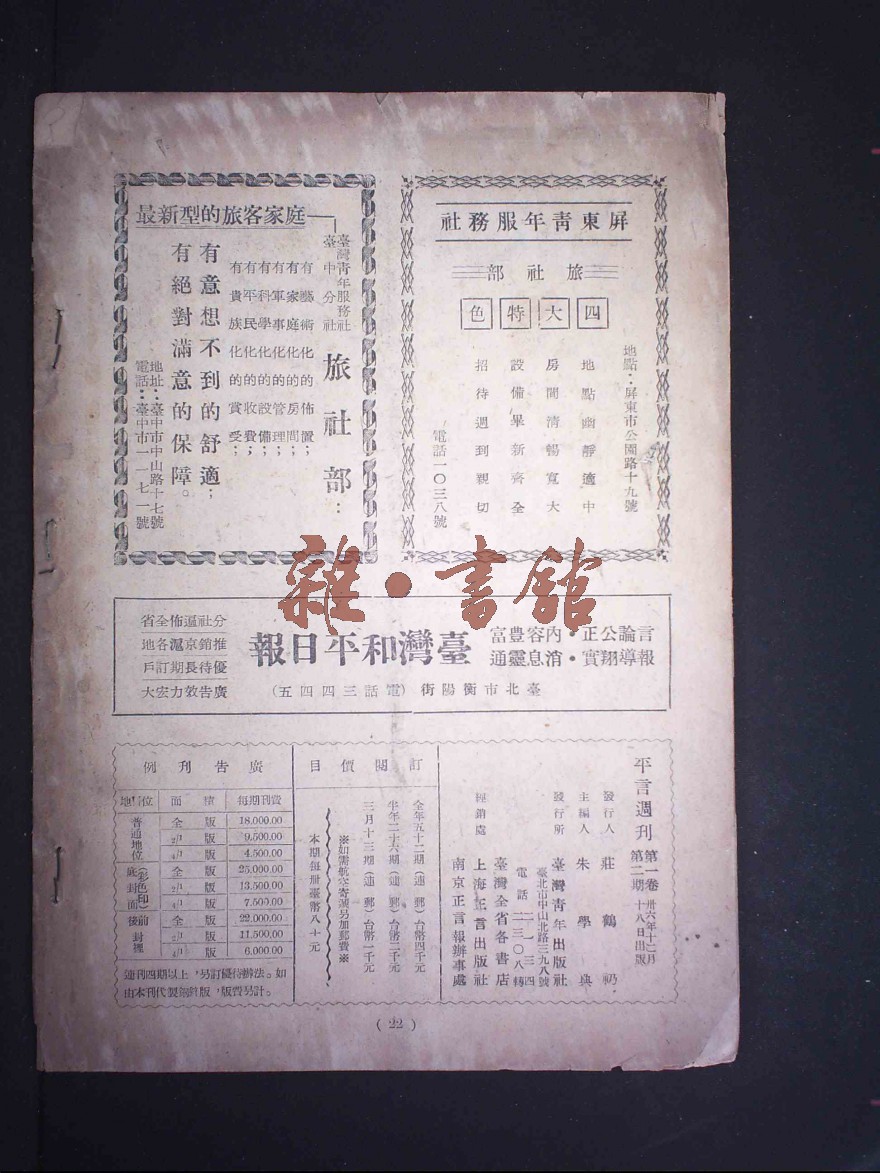 屏東青年服務社
旅社部
四大特色
地點：屏東市公園路十九號
地點幽靜適中
房間清暢寬大
設備畢新齊全
招待週到親切
電話一〇三八號
最新型的旅客家庭
臺灣青年服務社
臺中分社
旅社部：
有藝術化的佈置；
有家庭化的房間；
有軍事化的管理；
有科學化的設備；
有平民化的收費；
有貴族化的賞受；
有意想不到的舒適；
有絕對滿意的保障。
地址：臺中市中山路十七號
電話：臺中市一一七一號
雜・書館
言論公正・內容豊富
報導翔實・消息靈通
臺灣和平日報
臺北市衡陽街（電話三四四五）
分社遍佈全省
推銷京滬各地
優待長期訂戶
廣告效力宏大
平言週刊
第一卷 第二期
卅六年十二月十八日出版
發行人 莊鶴礽
主編人 朱學典
發行所 臺灣青年出版社
臺北市中山北路三九八號
經銷處 臺灣全省各書店
上海正言出版社
南京正言報辦事處
訂閱價目
全年五十二期（連郵）台幣四千元
半年二十六期（連郵）台幣二千元
三月十三期（連郵）台幣一千元
※如需航空寄遞另加郵費※
本期每册臺幣八十元
廣告刊例
地位 面積 每期刊費
普通地位 全版 18.000.00
版 9.500.00
版 4.500.00
底封面（彩色印） 全版 25,000.00
版 13.500.00
版 7.500.00
前後封裡 全版 22,000.00
版 11.500.00
版 6.000.00
連刊四期以上，另訂優待辦法。如
由本刊代製鋅版，版費另計。
（22）